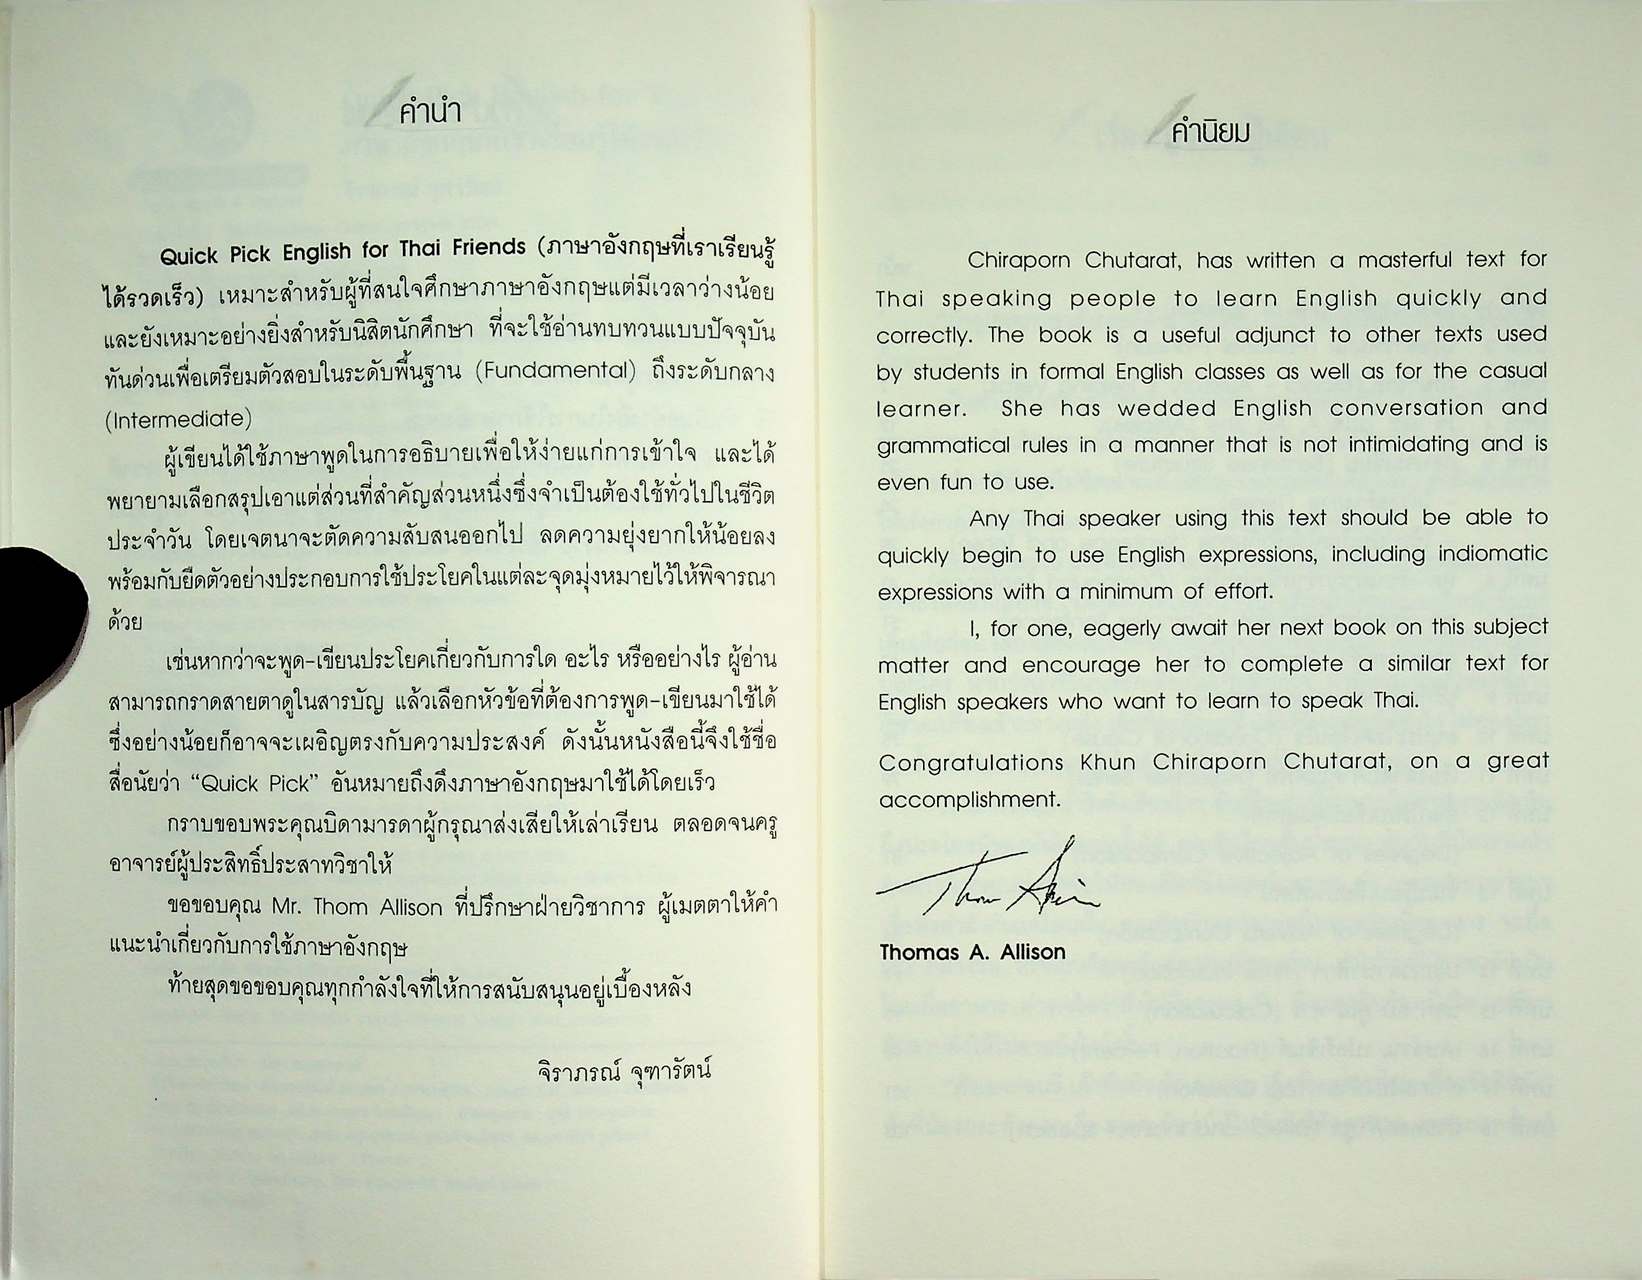 คำนำ
Quick Pick English for Thai Friends (ภาษาอังกฤษที่เราเรียนรู้
ได้รวดเร็ว) เหมาะสำหรับผู้ที่สนใจศึกษาภาษาอังกฤษแต่มีเวลาว่างน้อย
และยังเหมาะอย่างยิ่งสำหรับนิสิตนักศึกษา ที่จะใช้อ่านทบทวนแบบปัจจุบัน
ทันด่วนเพื่อเตรียมตัวสอบในระดับพื้นฐาน (Fundamental) ถึงระดับกลาง
(Intermediate)
ผู้เขียนได้ใช้ภาษาพูดในการอธิบายเพื่อให้ง่ายแก่การเข้าใจ และได้
พยายามเลือกสรุปเอาแต่ส่วนที่สำคัญส่วนหนึ่งซึ่งจำเป็นต้องใช้ทั่วไปในชีวิต
ประจำวัน โดยเจตนาจะตัดความสับสนออกไป ลดความยุ่งยากให้น้อยลง
พร้อมกับยืดตัวอย่างประกอบการใช้ประโยคในแต่ละจุดมุ่งหมายไว้ให้พิจารณา
ด้วย
เช่นหากว่าจะพูด-เขียนประโยคเกี่ยวกับการใด อะไร หรืออย่างไร ผู้อ่าน
สามารถกราดสายตาดูในสารบัญ แล้วเลือกหัวข้อที่ต้องการพูด-เขียนมาใช้ได้
ซึ่งอย่างน้อยก็อาจจะเผอิญตรงกับความประสงค์ ดังนั้นหนังสือนี้จึงใช้ชื่อ
สื่อนัยว่า “Quick Pick” อันหมายถึงดึงภาษาอังกฤษมาใช้ได้โดยเร็ว
กราบขอบพระคุณบิดามารดาผู้กรุณาส่งเสียให้เล่าเรียน ตลอดจนครู
อาจารย์ผู้ประสิทธิ์ประสาทวิชาให้
ขอขอบคุณ Mr. Thom Allison ที่ปรึกษาฝ่ายวิชาการ ผู้เมตตาให้คำ
แนะนำเกี่ยวกับการใช้ภาษาอังกฤษ
ท้ายสุดขอขอบคุณทุกกำลังใจที่ให้การสนับสนุนอยู่เบื้องหลัง
จิราภรณ์ จุฑารัตน์
คำนิยม
Chiraporn Chutarat, has written a masterful text for
Thai speaking people to learn English quickly and
correctly. The book is a useful adjunct to other texts used
by students in formal English classes as well as for the casual
learner. She has wedded English conversation and
grammatical rules in a manner that is not intimidating and is
even fun to use.
Any Thai speaker using this text should be able to
quickly begin to use English expressions, including indiomatic
expressions with a minimum of effort.
I, for one, eagerly await her next book on this subject
matter and encourage her to complete a similar text for
English speakers who want to learn to speak Thai.
Congratulations Khun Chiraporn Chutarat, on a great
accomplishment.
Thomas A. Allison